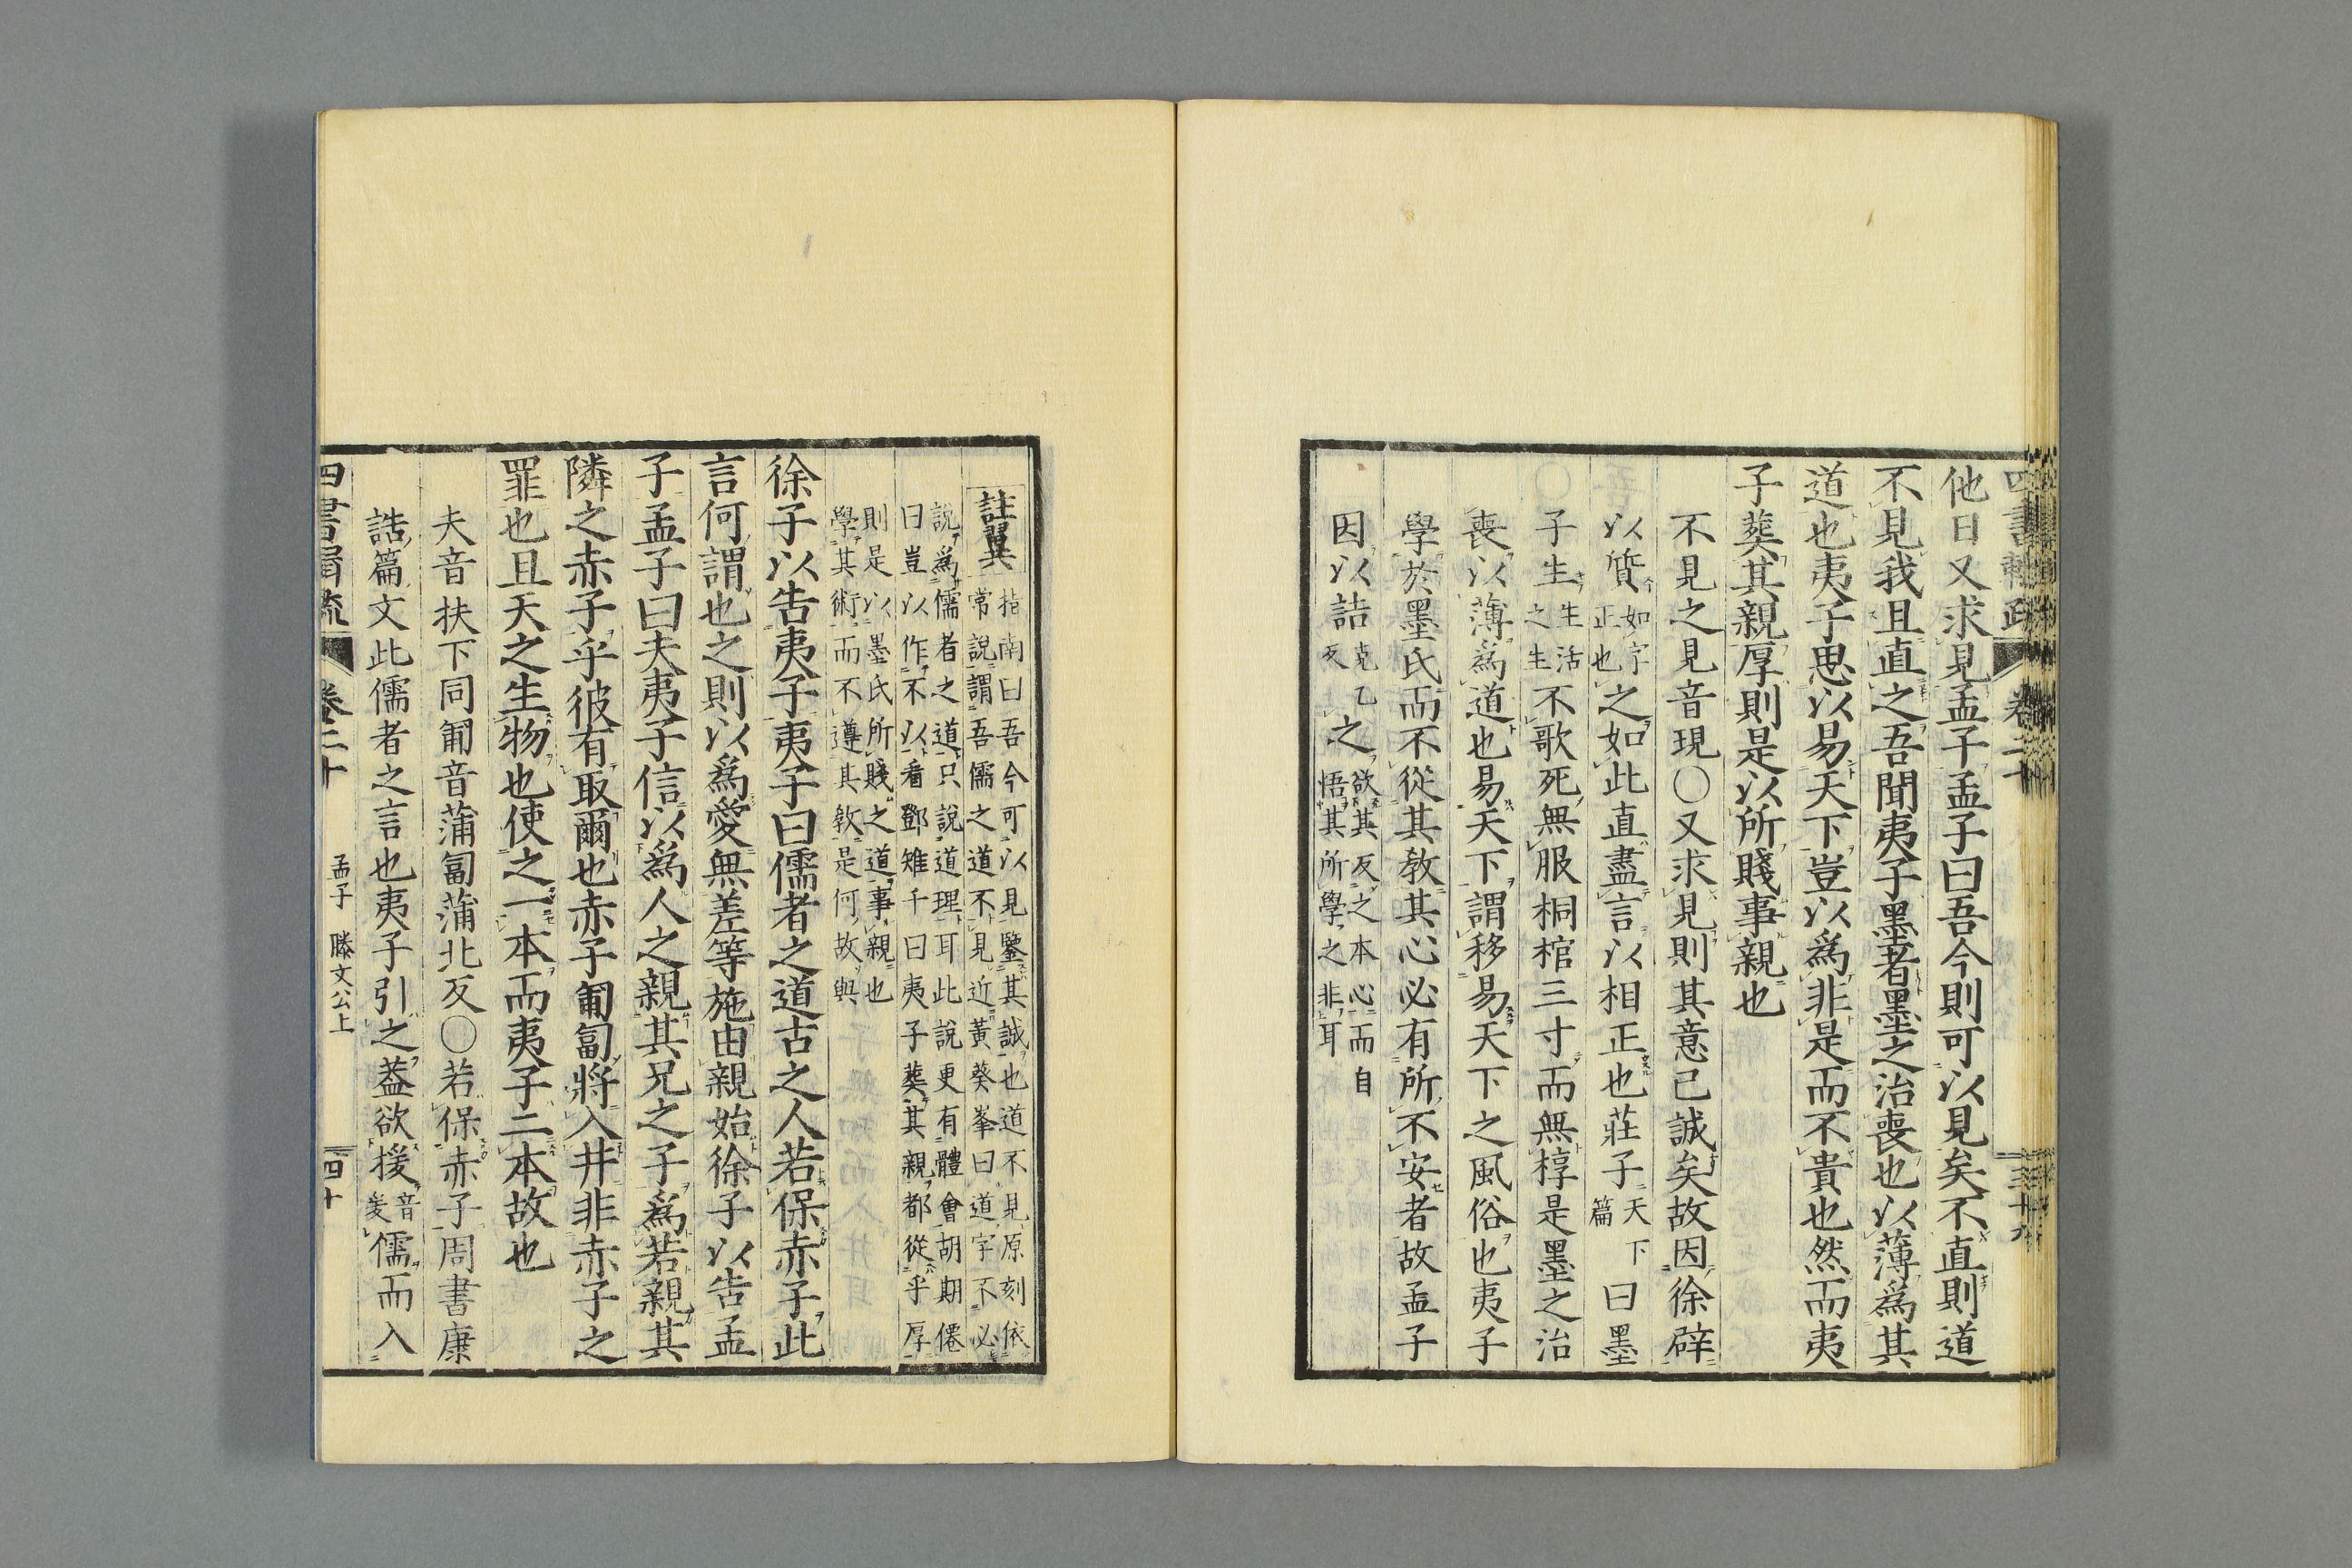 他日又求見孟子孟子曰吾今則可以見矣不直則道
不見我且直之吾聞夷子墨者墨之治喪也以薄爲其
道也夷子思以易天下豈以爲非是而不貴也然而夷
子葬其親厚則是以所賤事親也
不見之見音現〇又求見則其意已誠矣故因徐辟
以質如字正也之如此直盡言以相正也莊子天下篇曰墨
子生生活之生不歌死無服桐棺三寸而無椁是墨之治
喪以薄爲道也易天下謂移易天下之風俗也夷子
學於墨氏而不從其教其心必有所不安者故孟子
因以詰克乙反之欲其反之本心而自悟其所學之非耳
註翼 指南曰吾今可以見鑒其誠也道不見原刻依
常說謂吾儒之道不見近黃葵峯曰道字不必
說爲儒者之道只說道理耳此說更有體會胡期僊
曰豈以作不以看鄧雉千曰夷子葬其親都從乎厚
則是以墨氏所賤之道事親也
學其術而不遵其教是何故與
徐子以告夷子夷子曰儒者之道古之人若保赤子此
言何謂也之則以爲愛無差等施由親始徐子以告孟
子孟子曰夫夷子信以爲人之親其兄之子爲若親其
隣之赤子乎彼有取爾也赤子匍匐將入井非赤子之
罪也且天之生物也使之一本而夷子二本故也
夫音扶下同匍音蒲匐蒲北反〇若保赤子周書康
誥篇文此儒者之言也夷子引之葢欲援音爰儒而入
四書輯疏 卷二十 孟子 滕文公上 四十